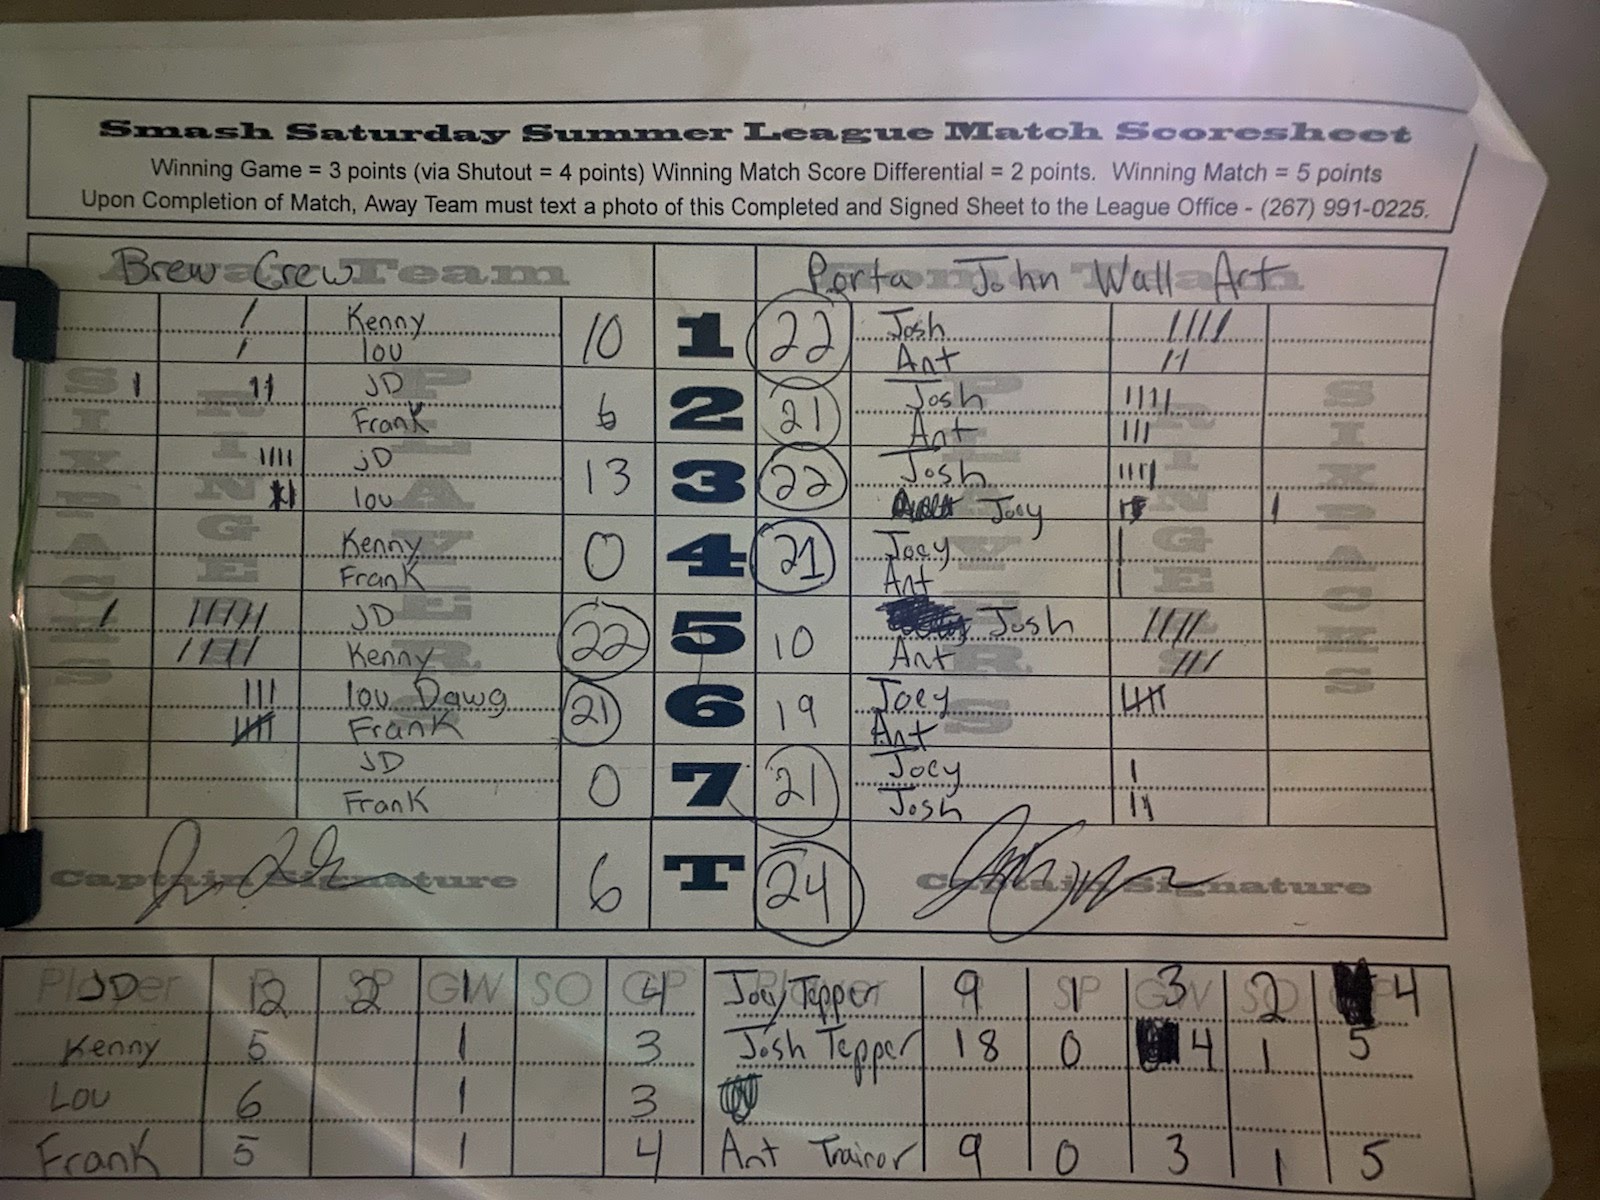 Smash Saturday Summer League Match Scoresheet
Winning Game = 3 points (via Shutout = 4 points) Winning Match Score Differential = 2 points. Winning Match = 5 points
Upon Completion of Match, Away Team must text a photo of this Completed and Signed Sheet to the League Office - (267) 991-0225.
Brew Crew Team Porta John Wall Art
Kenny 10 1 22 Josh
Lou Ant
JD 6 2 21 Josh
Frank Ant
JD 13 3 22 Josh
Lou Joey
Kenny 0 4 21 Joey
Frank Ant
JD 22 5 10 Josh
Kenny Ant
Lou Dawg 21 6 19 Joey
Frank Ant
JD 0 7 21 Joey
Frank Josh
SIXPACKS RINGERS PLAYERS PLAYERS RINGERS SIXPACKS
Captain Signature 6 T 24 Captain Signature
Player R SP GW SO GP Player R SP GW SO GP
JD 12 2 1 4 Joey Tepper 9 1 3 2 4
Kenny 5 1 3 Josh Tepper 18 0 4 1 5
Lou 6 1 3
Frank 5 1 4 Ant Trainor 9 0 3 1 5